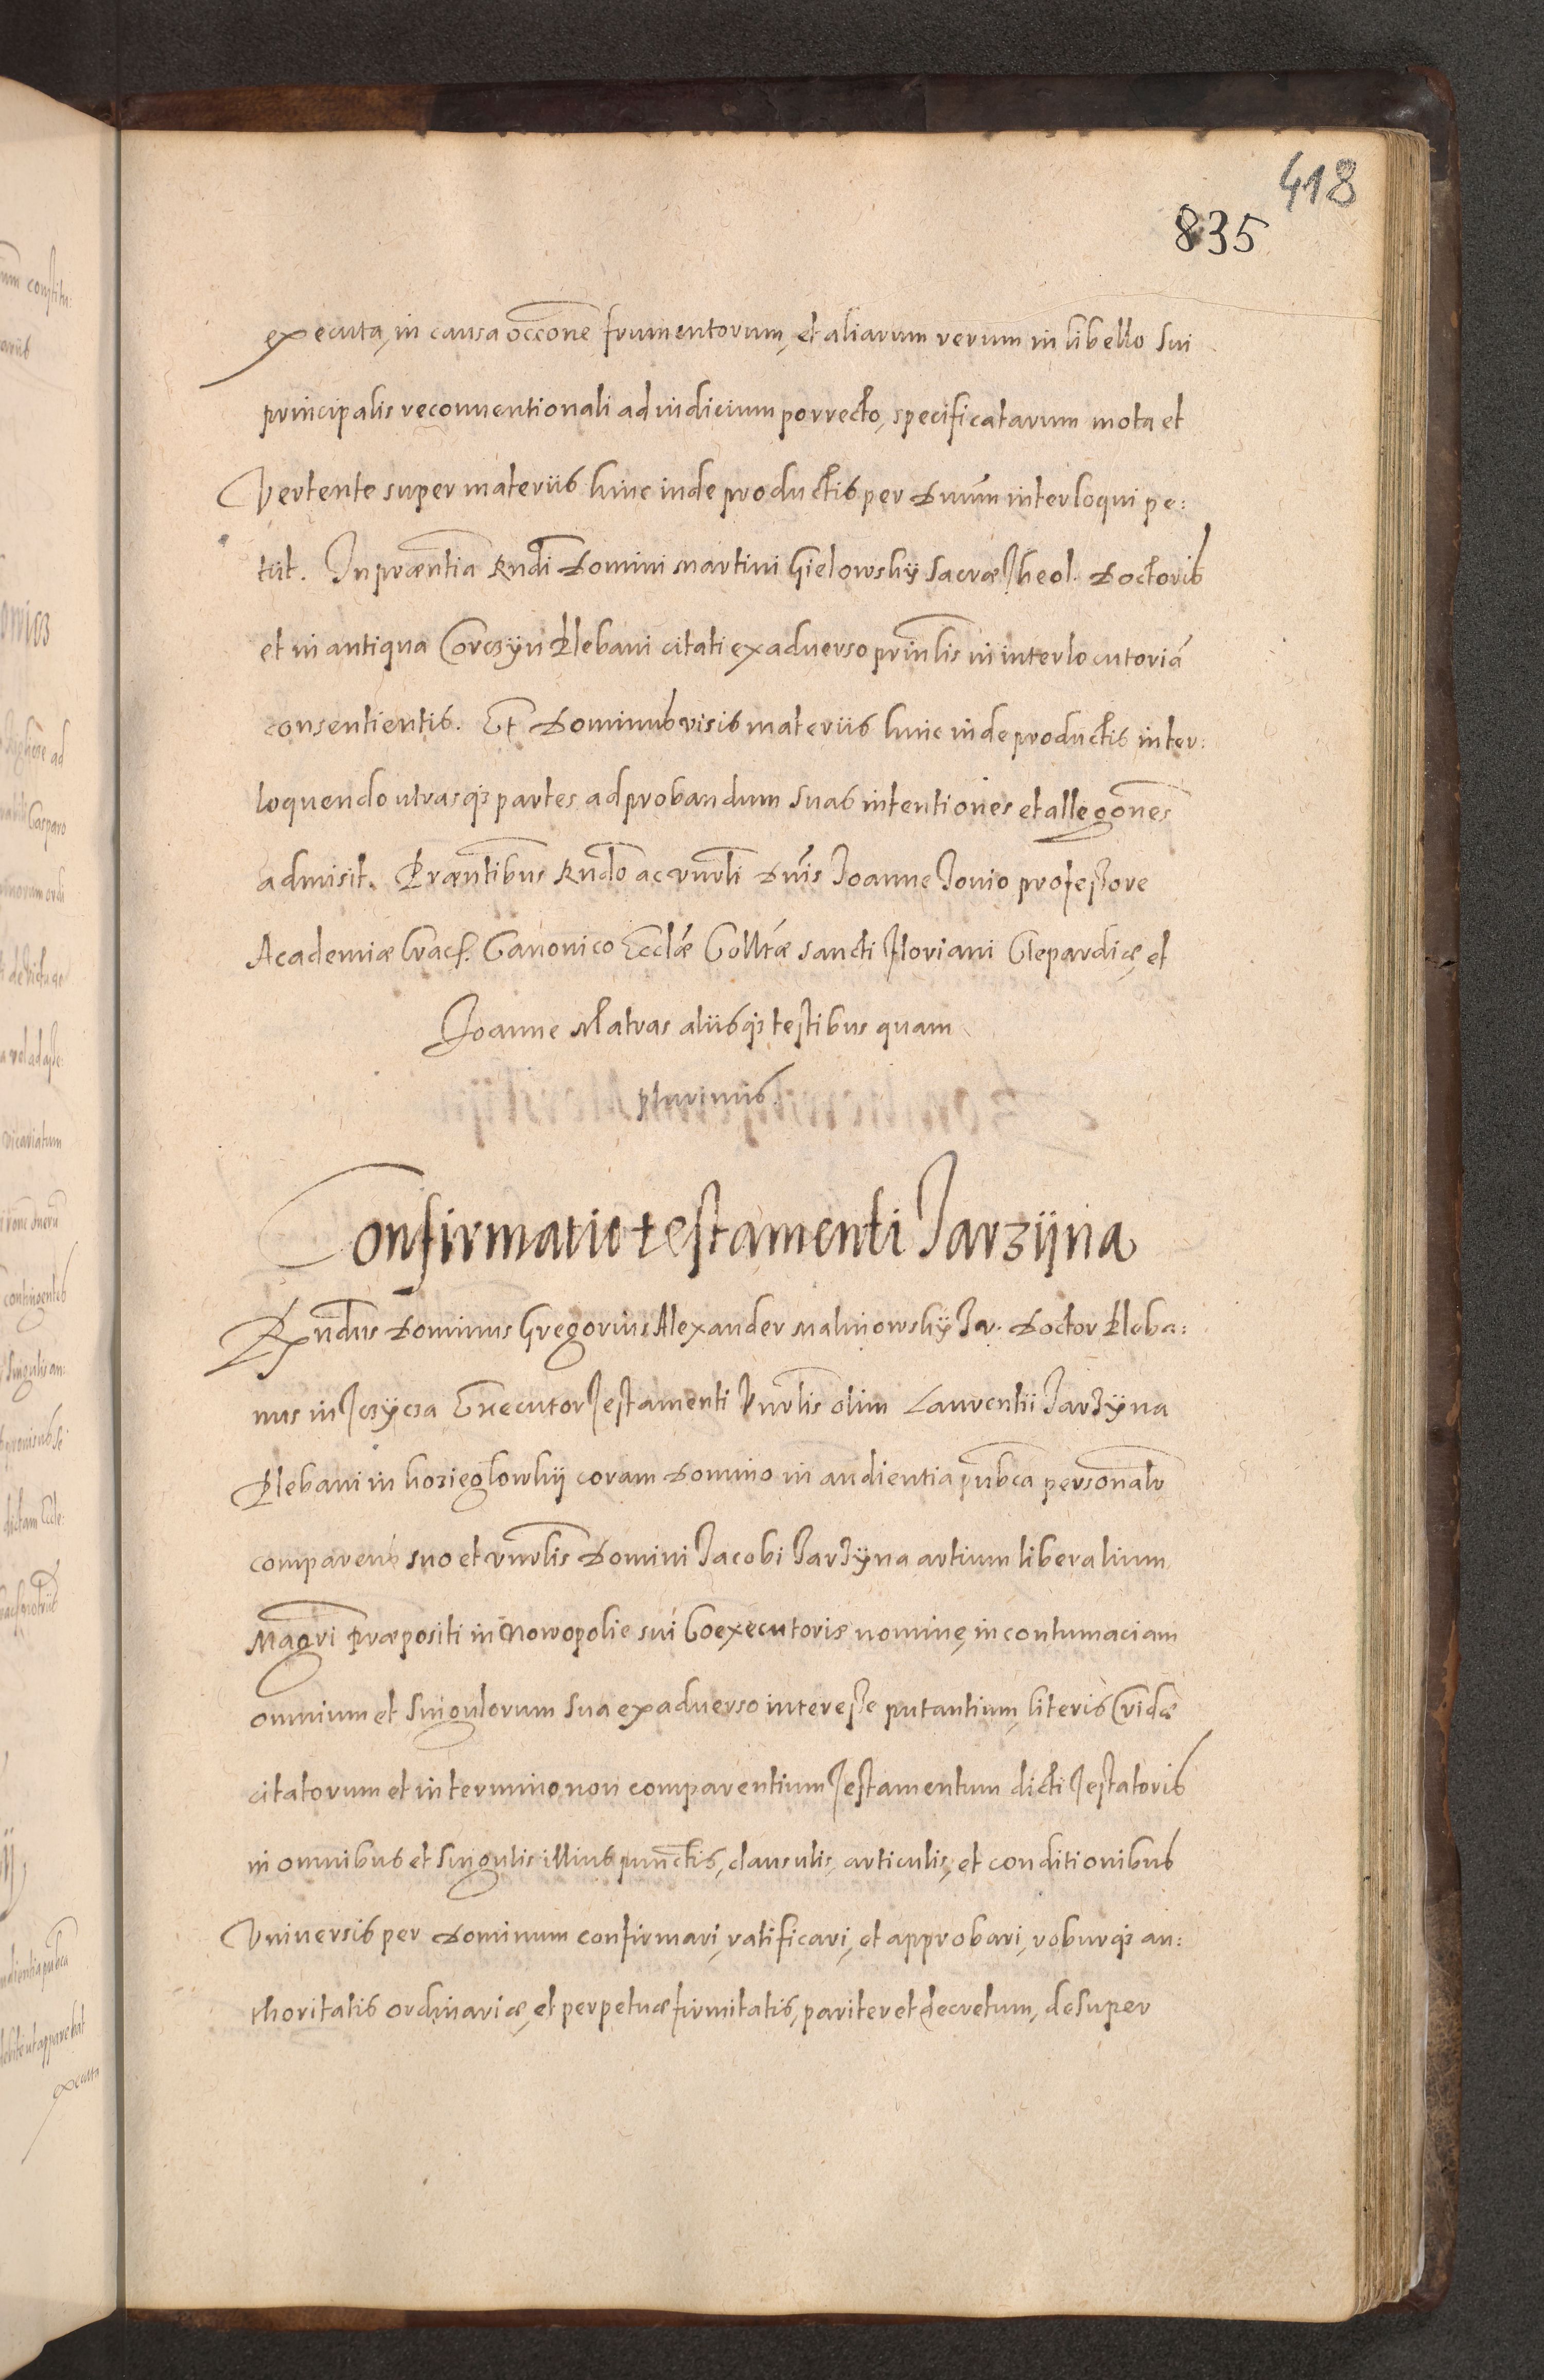 418
835
executa, in causa occone frumentorum, et aliarum rerum in libello sui
principalis reconuentionali ad iudicium porrecto, specificatarum mota et
Vertente super materiis hinc inde productis per Dnum interloqui pe:
tiit. In præntia Rndi Domini Martini Gielowskÿ Sacræ Theol. Doctoris
et in antiqua Corczÿn Plebani citati ex aduerso prinlis in interlocutoriã
consentientis. Et Dominus visis materiis hinc inde productis inter:
loquendo utrasq3 partes ad probandum suas intentiones et allegones
admisit. Præntibus Rndo ac vnrli Dnis Joanne Jonio professore
Academiæ Cracf. Canonico Ecclæ Colltæ Sancti Floriani Clepardiæ, et
Joanne Matras aliisq3 testibus quam
plurimis.
Confirmatio testamenti Jarzÿna
Rndus Dominus Gregorius Alexander Malinowskÿ Jv. Doctor Pleba:
nus in Tczÿcza Executor Testamenti Vnrlis olim Laurentii Jarzÿna
Plebani in koziegłowkÿ coram Domino in audientia pubca personalr
comparens suo et vnrlis Domini Jacobi Jarzÿna artium liberalium
Magri præpositi in Nowopolie sui Coexecutoris nomine, in contumaciam
omnium et singulorum sua ex aduerso interesse putantium, literis Cridæ
citatorum et in termino non comparentium Testamentum dicti Testatoris
in omnibus et singulis illius punctis, clausulis, articulis, et conditionibus
Vniuersis per Dominum confirmari, ratificari, et approbari, roburq3 au:
thoritatis ordinariæ, et perpetuæ firmitatis, pariter et decretum, desuper